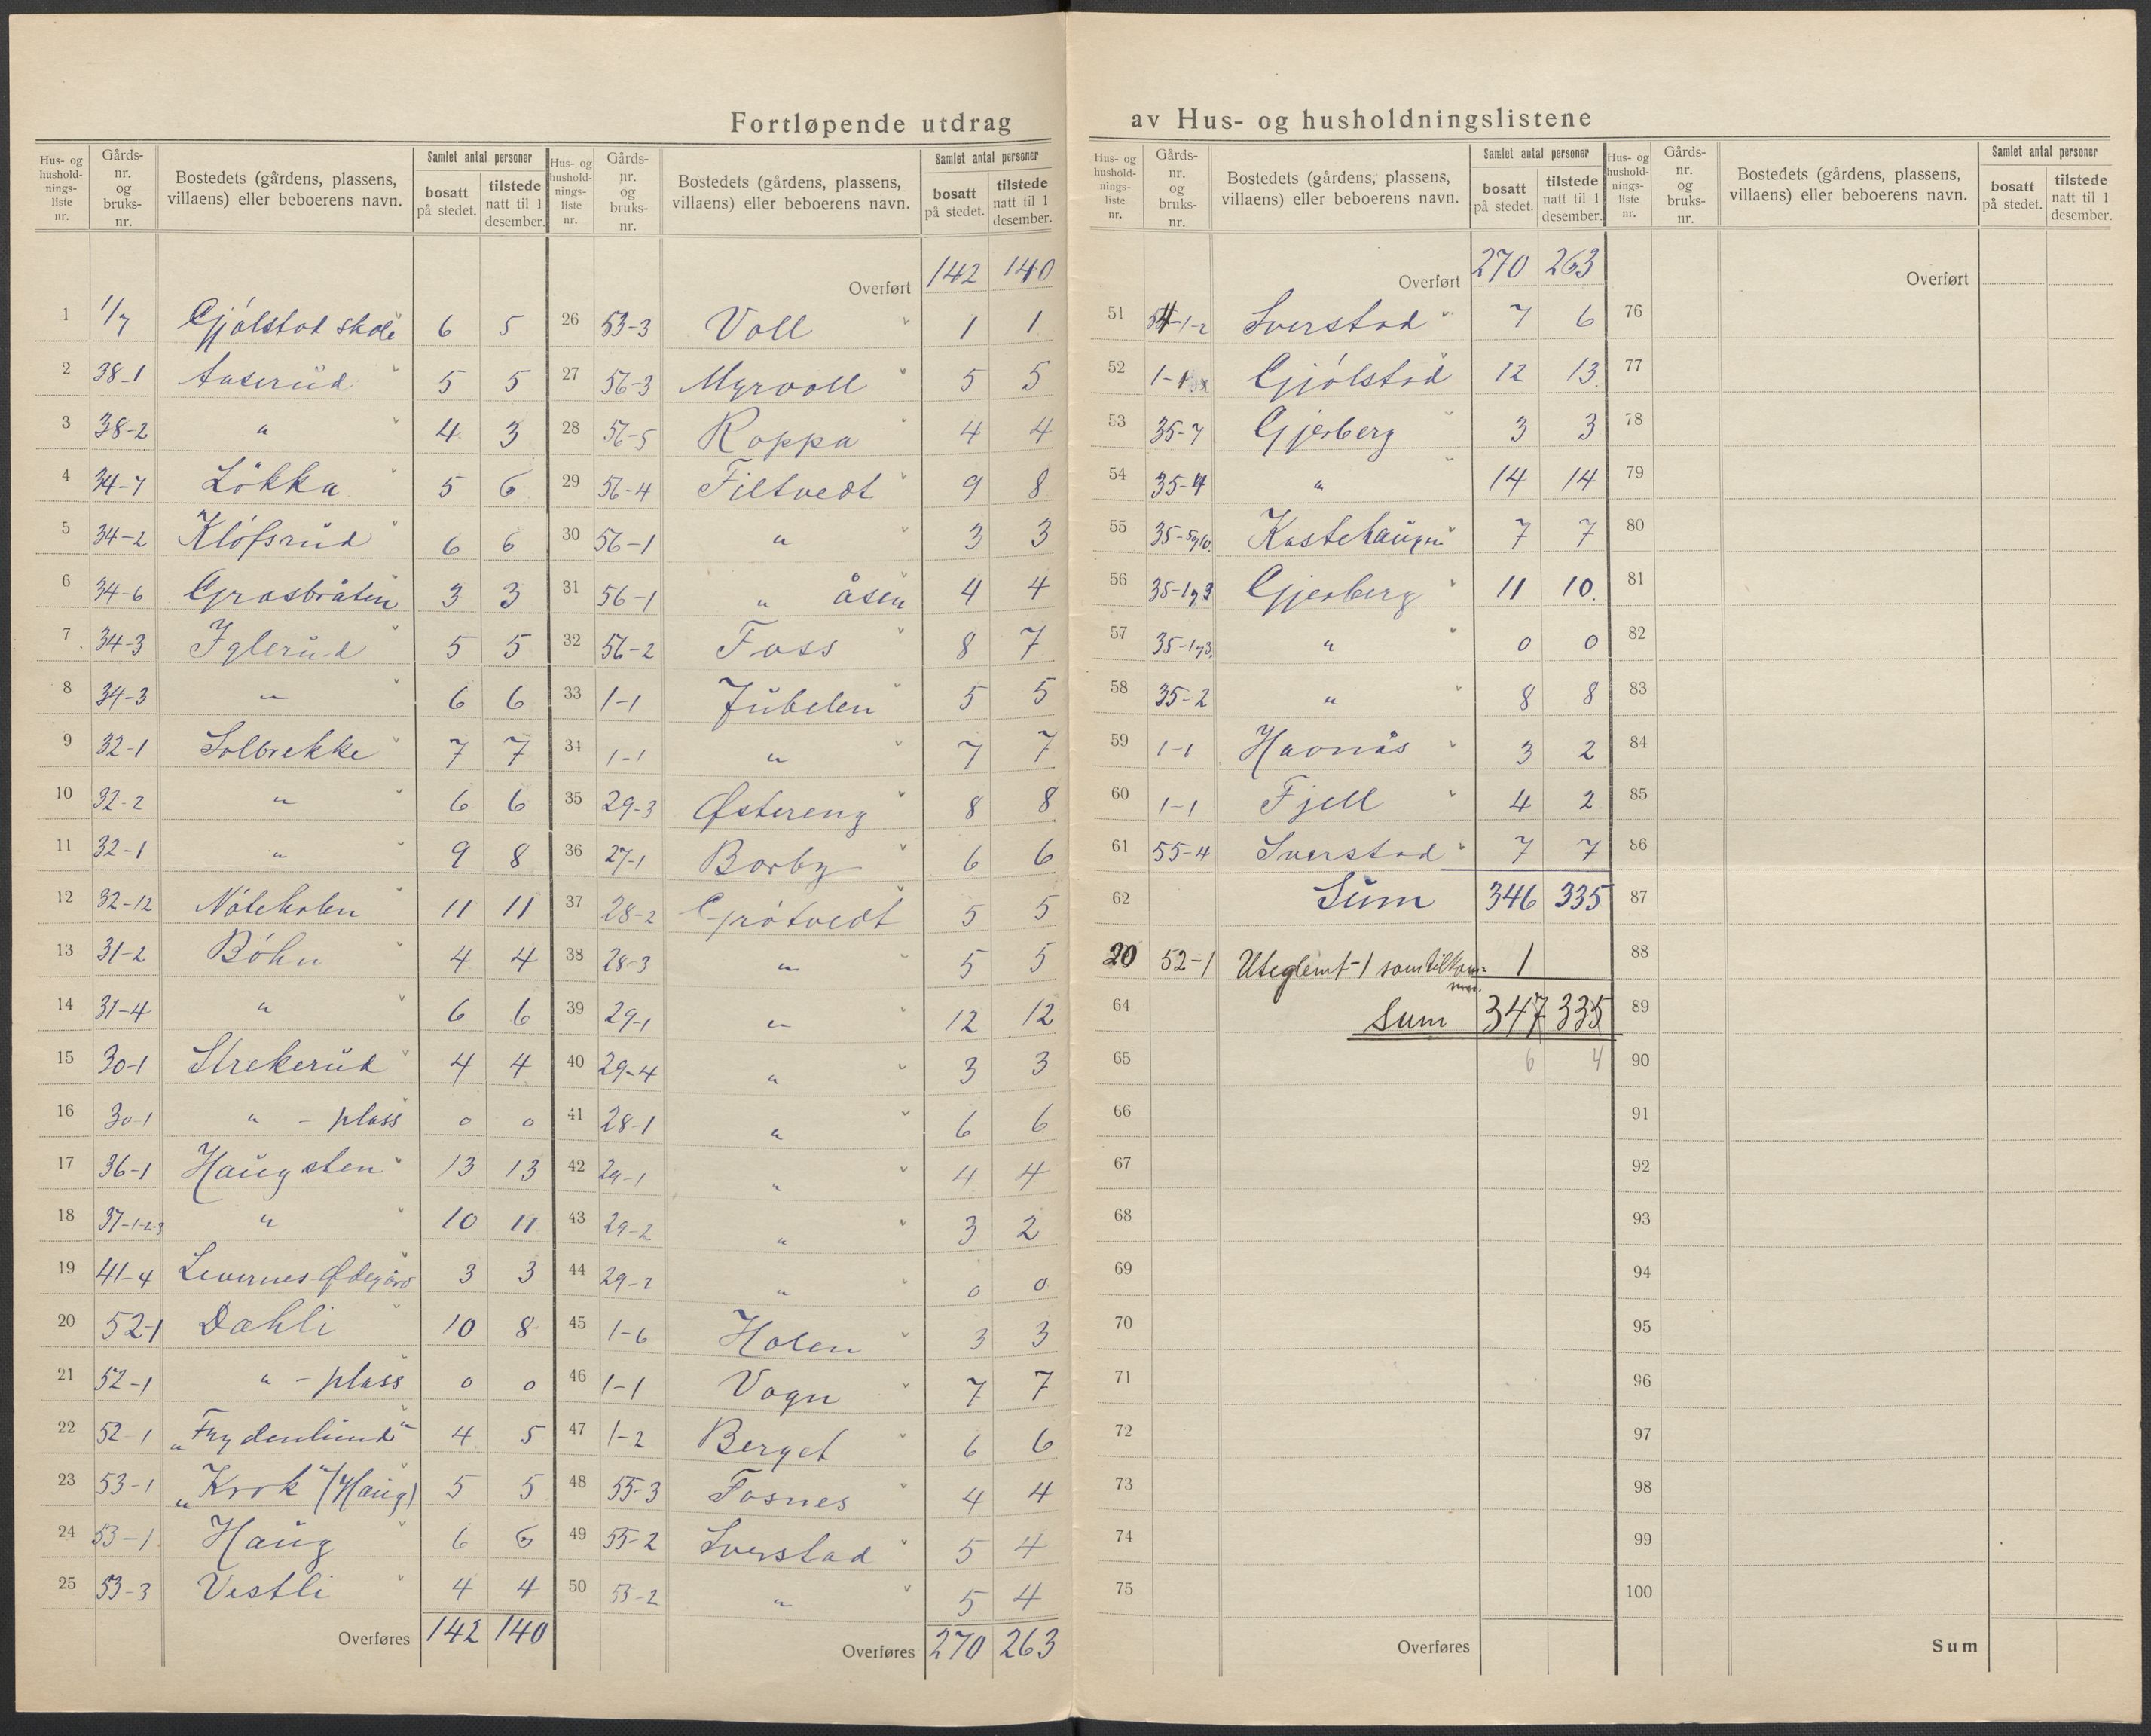 Fortløpende utdrag av Hus- og husholdningslistene
Hus- og husholdningsliste nr. | Gårds-nr. og bruks-nr. | Bostedets (gårdens, plassens, villaens) eller beboerens navn. | Samlet antal personer: bosatt på stedet. | tilstede natt til 1 desember.
1 1/7 Gjølstad skole 6 5
2 38-1 Aaserud 5 5
3 38-2 " 4 3
4 34-7 Løkka 5 6
5 34-2 Kløfsrud 6 6
6 34-6 Grasbråten 3 3
7 34-3 Iglerud 5 5
8 34-3 " 6 6
9 32-1 Solbrekke 7 7
10 32-2 " 6 6
11 32-1 " 9 8
12 32-12 Nøteholen 11 11
13 31-2 Bøhn 4 4
14 31-4 " 6 6
15 30-1 Strekerud 4 4
16 30-1 " - plass 0 0
17 36-1 Haugsten 13 13
18 37-1-2-3 " 10 11
19 41-4 Levernes Ødegård 3 3
20 52-1 Dahli 10 8
21 52-1 " - plass 0 0
22 52-1 "Frydenlund" 4 5
23 53-1 "Krok" (Haug) 5 5
24 53-1 Haug 6 6
25 53-3 Vestli 4 4
Overføres 142 140
Hus- og husholdningsliste nr. | Gårds-nr. og bruks-nr. | Bostedets (gårdens, plassens, villaens) eller beboerens navn. | Samlet antal personer: bosatt på stedet. | tilstede natt til 1 desember.
Overført 142 140
26 53-3 Voll 1 1
27 56-3 Myrvoll 5 5
28 56-5 Roppa 4 4
29 56-4 Filtvedt 9 8
30 56-1 " 3 3
31 56-1 " åsen 4 4
32 56-2 Foss 8 7
33 1-1 Jubelen 5 5
34 1-1 " 7 7
35 29-3 Østereng 8 8
36 27-1 Borby 6 6
37 28-2 Grøtvedt 5 5
38 28-3 " 5 5
39 29-1 " 12 12
40 29-4 " 3 3
41 28-1 " 6 6
42 29-1 " 4 4
43 29-2 " 3 2
44 29-2 " 0 0
45 1-6 Holen 3 3
46 1-1 Vogn 7 7
47 1-2 Berget 6 6
48 55-3 Fosnes 4 4
49 55-2 Sverstad 5 4
50 53-2 " 5 4
Overføres 270 263
Hus- og husholdningsliste nr. | Gårds-nr. og bruks-nr. | Bostedets (gårdens, plassens, villaens) eller beboerens navn. | Samlet antal personer: bosatt på stedet. | tilstede natt til 1 desember.
Overført 270 263
51 54-1-2 Sverstad 7 6
52 1-1 Gjølstad 12 13
53 35-7 Gjerberg 3 3
54 35-4 " 14 14
55 35-5 Kastehaugen 7 7
56 35-1 3 Gjerberg 11 10
57 35-1 3 " 0 0
58 35-2 " 8 8
59 1-1 Havnås 3 2
60 1-1 Fjell 4 2
61 55-4 Sverstad 7 7
62 Sum 346 335
20 52-1 Uteglemt - 1 som tilkommer 1
64 Sum 347 335
65 6 4
66
67
68
69
70
71
72
73
74
75
Overføres
Hus- og husholdningsliste nr. | Gårds-nr. og bruks-nr. | Bostedets (gårdens, plassens, villaens) eller beboerens navn. | Samlet antal personer: bosatt på stedet. | tilstede natt til 1 desember.
Overført
76
77
78
79
80
81
82
83
84
85
86
87
88
89
90
91
92
93
94
95
96
97
98
99
100
Sum